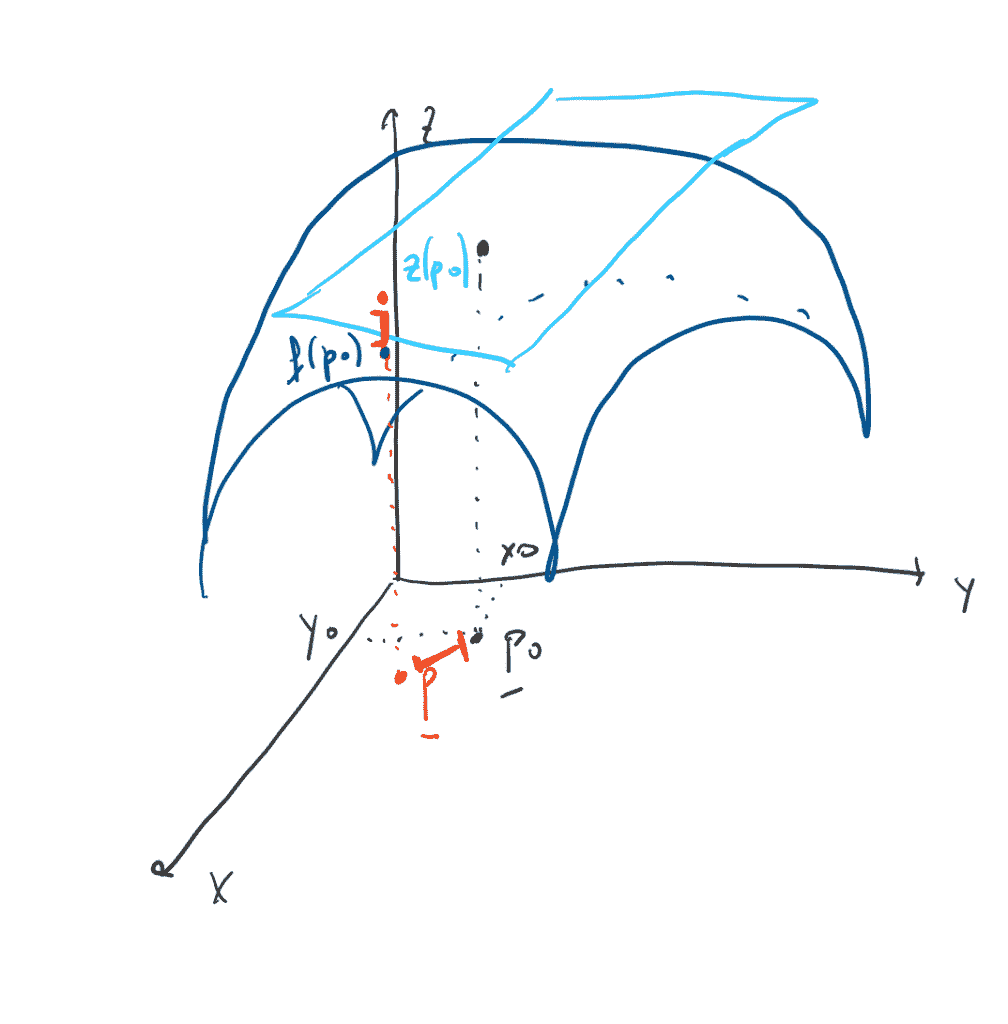 z
z(p0)
f(p0)
x0
Y
Y0
p0
p
X